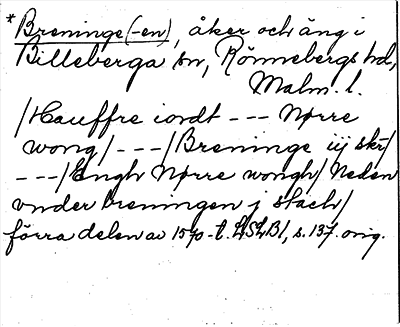 *Breninge (-en), åker och äng i
Billeberga sn, Rönnebergs hd,
Malm. l.
/Hauffre iordt --- Nørre
wong/ ---/Breninge iij skr/
---/Engh Nørre wongh/ Neden
vnder breningen j stach/
förra delen av 1570-t. LSLB1, s. 137. orig.